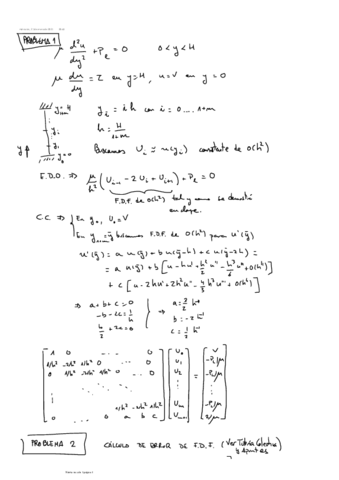 PROBLEMA 1
μ d²u/dy² + P_l = 0   0 < y < H
μ du/dy = τ en y=H, u=V en y=0
y_i = i h con i = 0....1+m
h = H/(1+m)
Buscamos U_i ≈ u(y_i) constante de O(h²)
E.D.O. ⇒ μ/h² (U_{i-1} - 2U_i + U_{i+1}) + P_l = 0
F.D.F. de O(h²) tal y como se demostró
en clase.
C.C. ⇒ En y_0, U_0 = V
En y_{m+1} = ȳ buscamos F.D.F. de O(h²) para u'(ȳ)
u'(ȳ) = a u(ȳ) + b u(ȳ-h) + c u(ȳ-2h) =
= a u(ȳ) + b [u - hu' + h²/2 u'' - h³/6 u''' + O(h⁴)]
+ c [u - 2hu' + 2h²u'' - 4/3 h³u''' + O(h⁴)]
⇒ a+b+c = 0
-b - 2c = 1/h
b/2 + 2c = 0
⇒ a = 3/2 h⁻¹
b = -2h⁻¹
c = 1/2 h⁻¹
1 0 ... 0   U_0   V
1/h² -2/h² 1/h² 0 ... 0   U_1   -P_l/μ
0 1/h² -2/h² 1/h² 0 ... 0   U_2   -P_l/μ
1/h² -2/h² 1/h²   U_m   -P_l/μ
0 ... 0 a b c   U_{m+1}   τ/μ
PROBLEMA 2   CÁLCULO DE ERROR DE F.D.F. (Ver Tutoría Colectiva
y apuntes